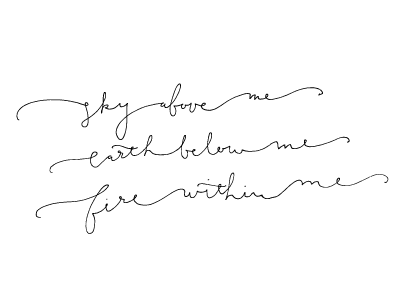 sky above me
earth below me
fire within me